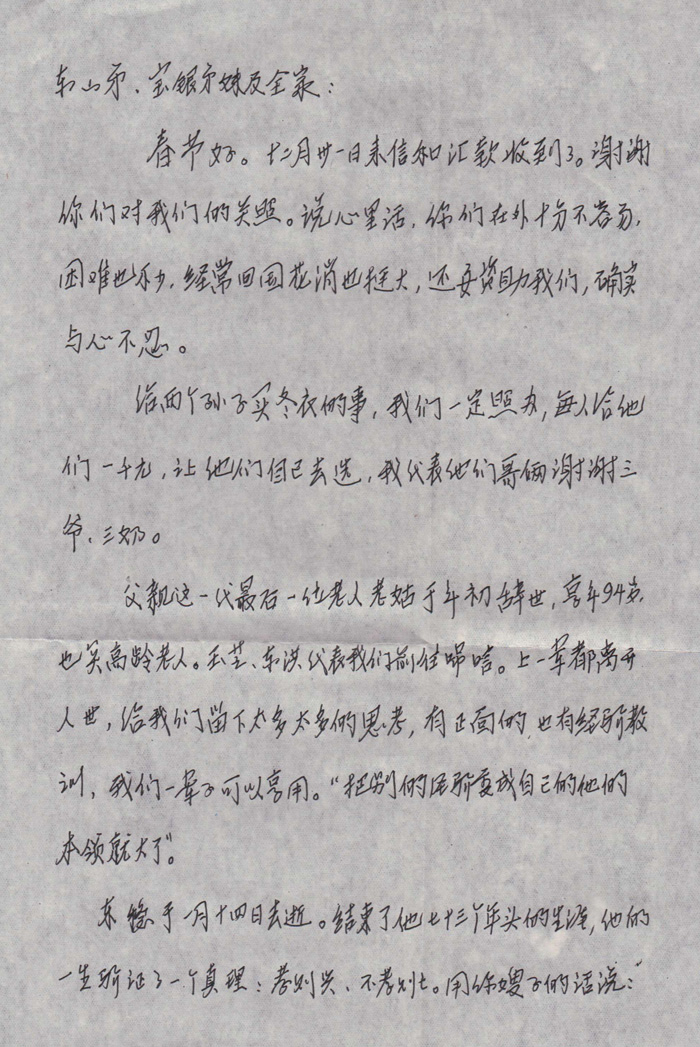 东山弟、宝银弟妹及全家:
春节好。十二月廿一日来信和汇款收到了。谢谢
你们对我们的关照。说心里话,你们在外十分不容易,
困难也不少,经常回国花消也挺大,还要资助我们,确实
与心不忍。
给两个孙子买冬衣的事,我们一定照办,每人给他
们一千元,让他们自己去选,我代表他们哥俩谢谢三
爷、三奶。
父亲这一代最后一位老人老姑于年初辞世,享年94岁,
也算高龄老人。玉芝、东洪代表我们前往吊唁。上一辈都离开
人世,给我们留下太多太多的思考,有正面的,也有经验教
训,我们一辈子可以享用。“把别的经验变成自己的他的
本领就大了”。
东 于一月十四日去逝。结束了他七十三个年头的生涯,他的
一生验证了一个真理:孝则兴、不孝则亡。用你嫂子的话说:“